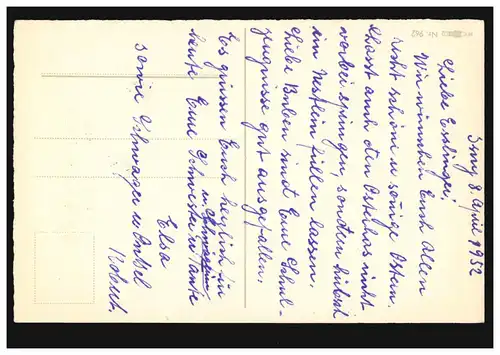 8. April 1952
Liebe Erdinger!
Wir wünschen Euch Allen
recht schöne u sonige Ostern.
Lasst auch den Osterhas nicht
vorbei springen, sondern hübsch
ein Nestlein füllen lassen.
Liebe Buben sind Eure Schul-
zeugnisse gut ausgefallen.
Es grüssen Euch herzlich für
heute Eure Schwester u Tante
u Schwägerin
Elsa
sowie Schwager u Onkel
Robert.